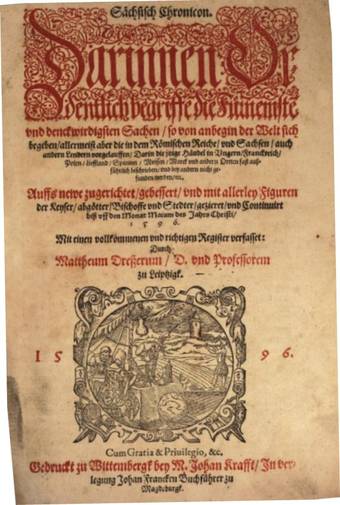 Sächsisch Chronicon.
Darinnen Or
dentlich begriffe die Fürnemste
vnd denckwirdigsten Sachen / so von anbegin der Welt sich
begeben / allermeist aber die in dem Römischen Reiche / vnd Sachsen / auch
andern Lendern vorgelauffen / Darin die jtzige Händel in Vngern / Franckreich /
Polen / Lieffland / Spanien / Meissen / Marck vnd andern Orten fast auß-
führlich beschrieben / vnd bey andern nicht ge-
funden werden / etc.
Auffs newe zugerichtet / gebessert / vnd mit allerley Figuren
der Keyser / abgötter / Bischoffe vnd Stedter / gezieret / vnd Continuirt
biß vff den Monat Martium des Jahrs Christi /
1596.
Mit einen vollkommenen vnd richtigen Register verfasset:
Durch
Mattheum Dreßerum / D. vnd Professorem
zu Leiptzigk.
15 96.
Cum Gratia & Priuilegio, &c.
Gedruckt zu Wittembergk bey M. Johan Krafft / In ver-
legung Johan Francken Buchführer zu
Magdeburgk.